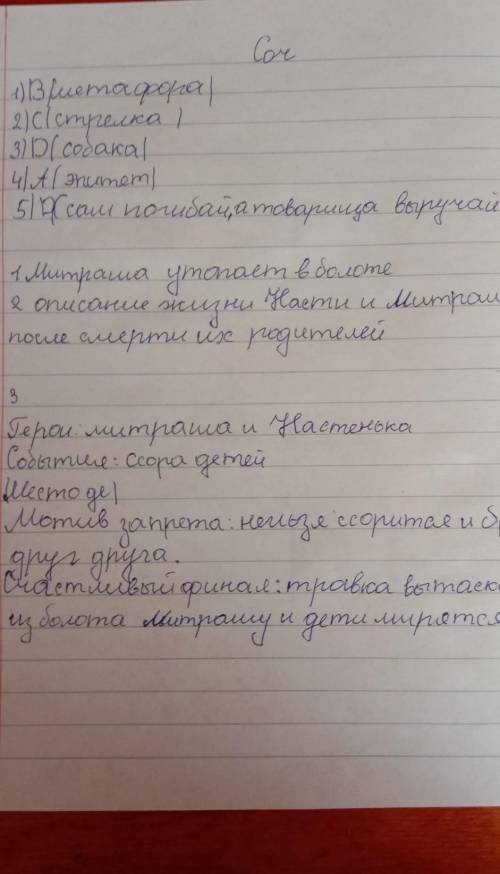 Соч
1) В(метафора)
2) С(стрелка)
3) D(собака)
4) А(эпитет)
5) D(сам погибай, а товарища выручай
1 Митраша утопает в болоте
2 описание жизни Насти и Митраш
после смерти их родителей
3
Герои: митраша и Настенька
События: ссора детей
Место де|
Мотив запрета: нельзя ссорится и бр
друг друга.
Счастливый финал: травка вытаск
из болота Митрашу и дети мирятся